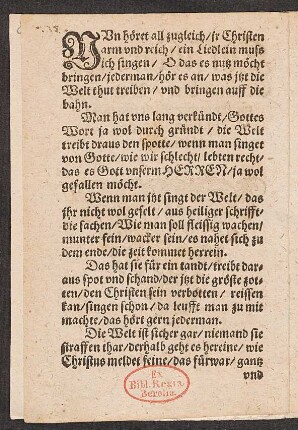 NVn höret all zugleich/jr Christen
arm vnd reich/ein Liedlein muß
ich singen/ O das es nutz möcht
bringen/jederman/hör es an/was jtzt die
Welt thut treiben/ vnd bringen auff die
bahn.
Man hat vns lang verkündt/Gottes
Wort ja wol durch gründt/ die Welt
treibt draus den spotte/wenn man singet
von Gotte/wie wir schlecht/lebten recht/
das es Gott vnserm HERREN/ja wol
gefallen möcht.
Wenn man jtzt singt der Welt/das
jhr nicht wol gefelt/aus heiliger schrifft/
die sachen/Wie man soll fleissig wachen/
munter sein/wacker sein/es nahet sich zu
dem ende/die zeit kommet herrein.
Das hat sie für ein tandt/treibt dar-
aus spot vnd schand/der jtzt die gröste zot-
ten/den Christen sein verbotten/ reissen
kan/singen schon/da leufft man zu mit
machte/das hört gern jederman.
Die Welt ist sicher gar/niemand sie
straffen thar/derhalb geht es hereine/wie
Christus meldet feine/das fürwar/gantz
vnd
Ex
Bibl. Regia
Berolin.